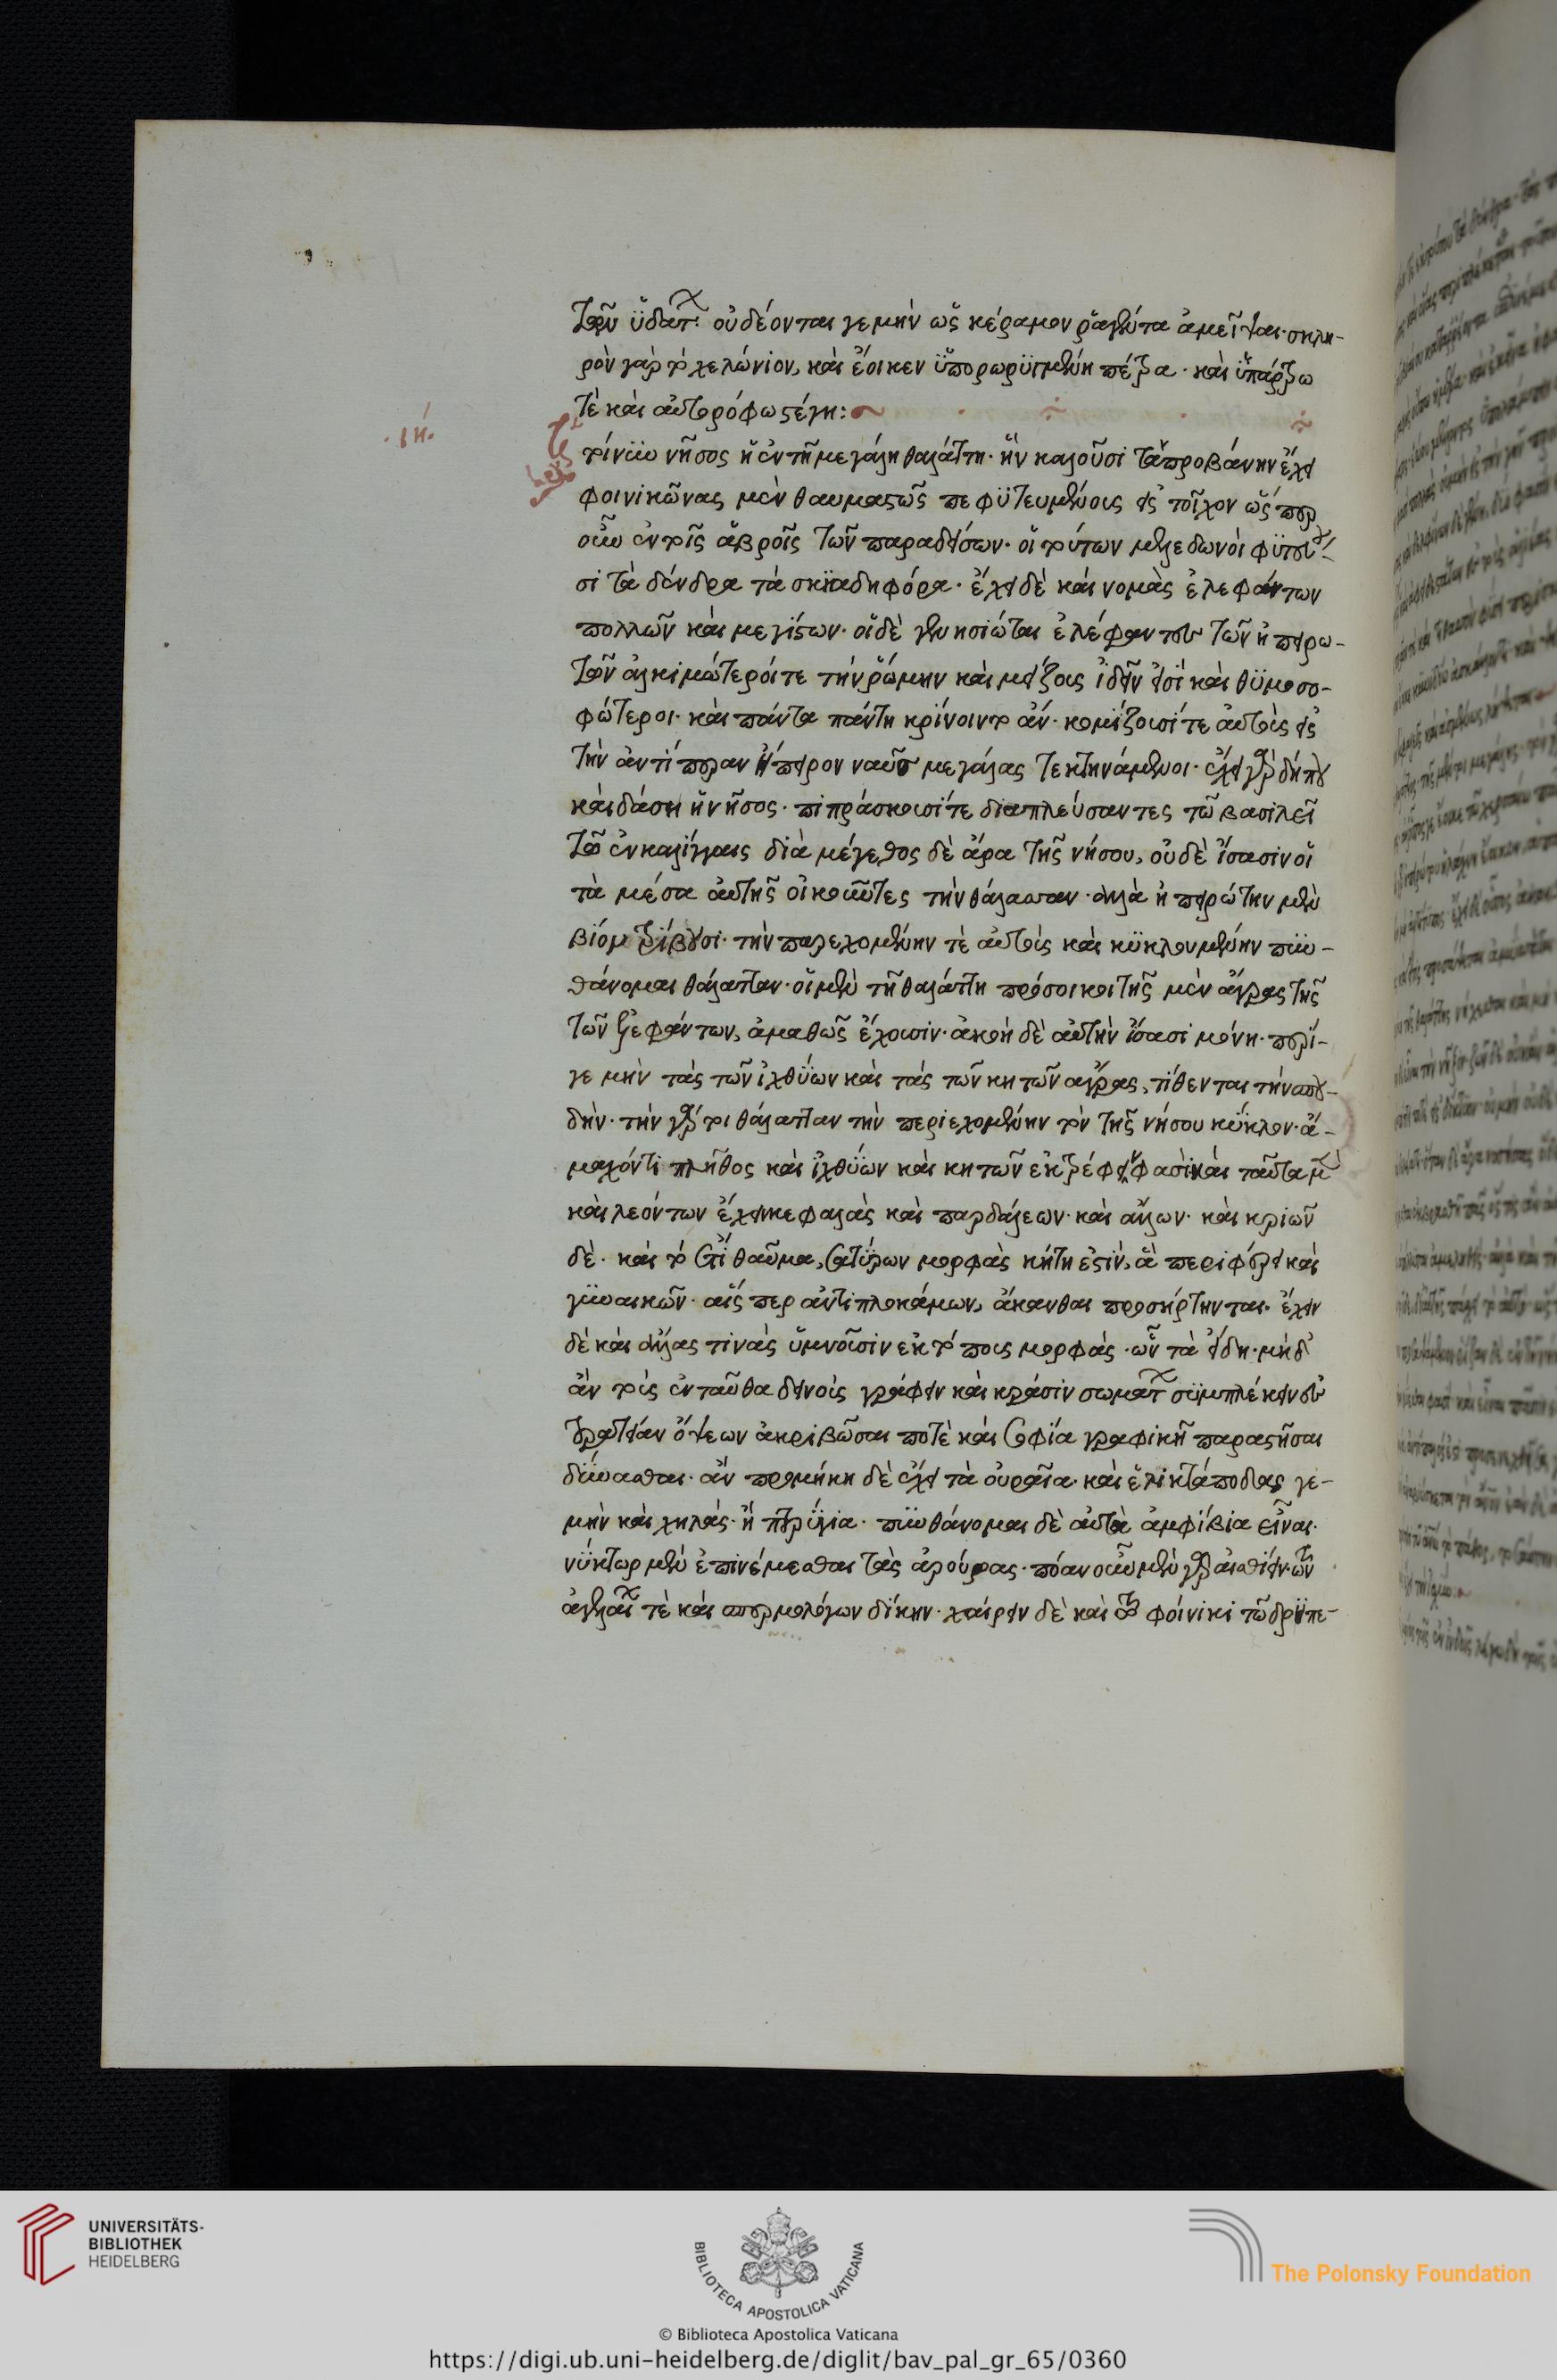 τῶν ὑδάτων. οὐ δέονται γε μὴν ὡς κέραμον ῥαγέντα ἀμεῖψαι. σκλη-
ρὸν γὰρ τὸ χελώνιον, καὶ ἔοικεν ὑπορωρυγμένη πέτρα. καὶ ὑπάντρω
τὲ καὶ αὐτορόφω στέγη:
·ιη·
τοίνυν νῆσος ἣ ἐν τῆ μεγάλη θαλάττη. ἣν καλοῦσι ταπροβάνην ἔχει
φοινικῶνας μὲν θαυμαστῶς πεφυτευμένους εἰς τοῖχον ὥσπερ
οὖν ἐν τοῖς ἁβροῖς τῶν παραδείσων. οἱ τούτων μελεδωνοὶ φυτεύου-
σι τὰ δένδρα τὰ σκιαδηφόρα. ἔχει δὲ καὶ νομὰς ἐλεφάντων
πολλῶν καὶ μεγίστων. οἵδε νησιῶται ἐλέφαντες τῶν ἠπειρω-
τῶν ἀλκιμώτεροί τε τὴν ῥώμην καὶ μείζους ἰδεῖν εἰσὶ καὶ θυμοσο-
φώτεροι. καὶ πάντα πάντη κρίνοιντο ἄν. κομίζουσί τε αὐτοὺς εἰς
τὴν ἀντίπεραν ἤπειρον ναῦς μεγάλας τεκτηνάμενοι. ἔχει γὰρ δήπου
καὶ δάση ἡ νῆσος. πιπράσκουσί τε διαπλεύσαντες τῶ βασιλεῖ
τῶ ἐν καλίγγαις διὰ μέγεθος δὲ ἄρα τῆς νήσου, οὐδὲ ἴσασιν οἱ
τὰ μέσα αὐτῆς οἰκοῦντες τὴν θάλασσαν. ἀλλὰ ἠπειρώτην μὲν
βίον τρίβουσι. τὴν περιεχομένην τὲ αὐτοὺς καὶ κυκλουμένην πυν-
θάνομαι θάλατταν. οἱ μὲν τῆ θαλάττη πρόσοικοι τῆς μὲν ἄγρας τῆς
τῶν ἐλεφάντων, ἀμαθῶς ἔχουσιν. ἀκοῆ δὲ αὐτὴν ἴσασι μόνη. περί
γε μὴν τὰς τῶν ἰχθύων καὶ τὰς τῶν κητῶν ἄγρας, τίθενται τὴν σπου-
δήν. τὴν γάρ τοι θάλατταν τὴν περιεχομένην τὸν τῆς νήσου κύκλον. ἄ-
μαχόν τι πλῆθος καὶ ἰχθύων καὶ κητῶν ἐκτρέφειν φασὶ καὶ ταῦτα μὲν
καὶ λεόντων ἔχειν κεφαλὰς καὶ παρδάλεων. καὶ ἄλλων. καὶ κριῶν
δέ. καὶ τὸ ἔτι θαῦμα, σατύρων μορφὰς κήτη ἐστίν, ἃ περιφέρει καὶ
γυναικῶν. αἷς περ ἀντὶ πλοκάμων, ἄκανθαι προσήρτηνται. ἔχειν
δὲ καὶ ἄλλας τινὰς ὑμνοῦσιν ἐκτόπους μορφάς. ὧν τὰ εἴδη. μὴ δ᾽
ἂν τοὺς ἐνταῦθα δεινοὺς γράφειν καὶ κρᾶσιν σωμάτων συμπλέκειν ἐς
τερατείαν ὄψεων ἀκριβῶσαι ποτὲ καὶ σοφία γραφικῆ παραστῆσαι
δύνασθαι. ἂν προμήκη δὲ ἔχει τὰ οὐραῖα. καὶ ἑλικτὰ πόδας γε
μὴν καὶ χηλάς. ἢ πτερύγια. πυνθάνομαι δὲ αὐτὰ ἀμφίβια εἶναι.
νύκτωρ μὲν ἐπινέμεσθαι τὰς ἀρούρας. πόαν οὖν μὲν γὰρ ἐσθίειν. τῶν
ἀγελαίων τὲ καὶ σπερμολόγων δίκην. χαίρειν δὲ καὶ τῶ φοίνικι τῶ δρυπε-
UNIVERSITÄTS-
BIBLIOTHEK
HEIDELBERG
BIBLIOTECA APOSTOLICA VATICANA
The Polonsky Foundation
© Biblioteca Apostolica Vaticana
https://digi.ub.uni-heidelberg.de/diglit/bav_pal_gr_65/0360